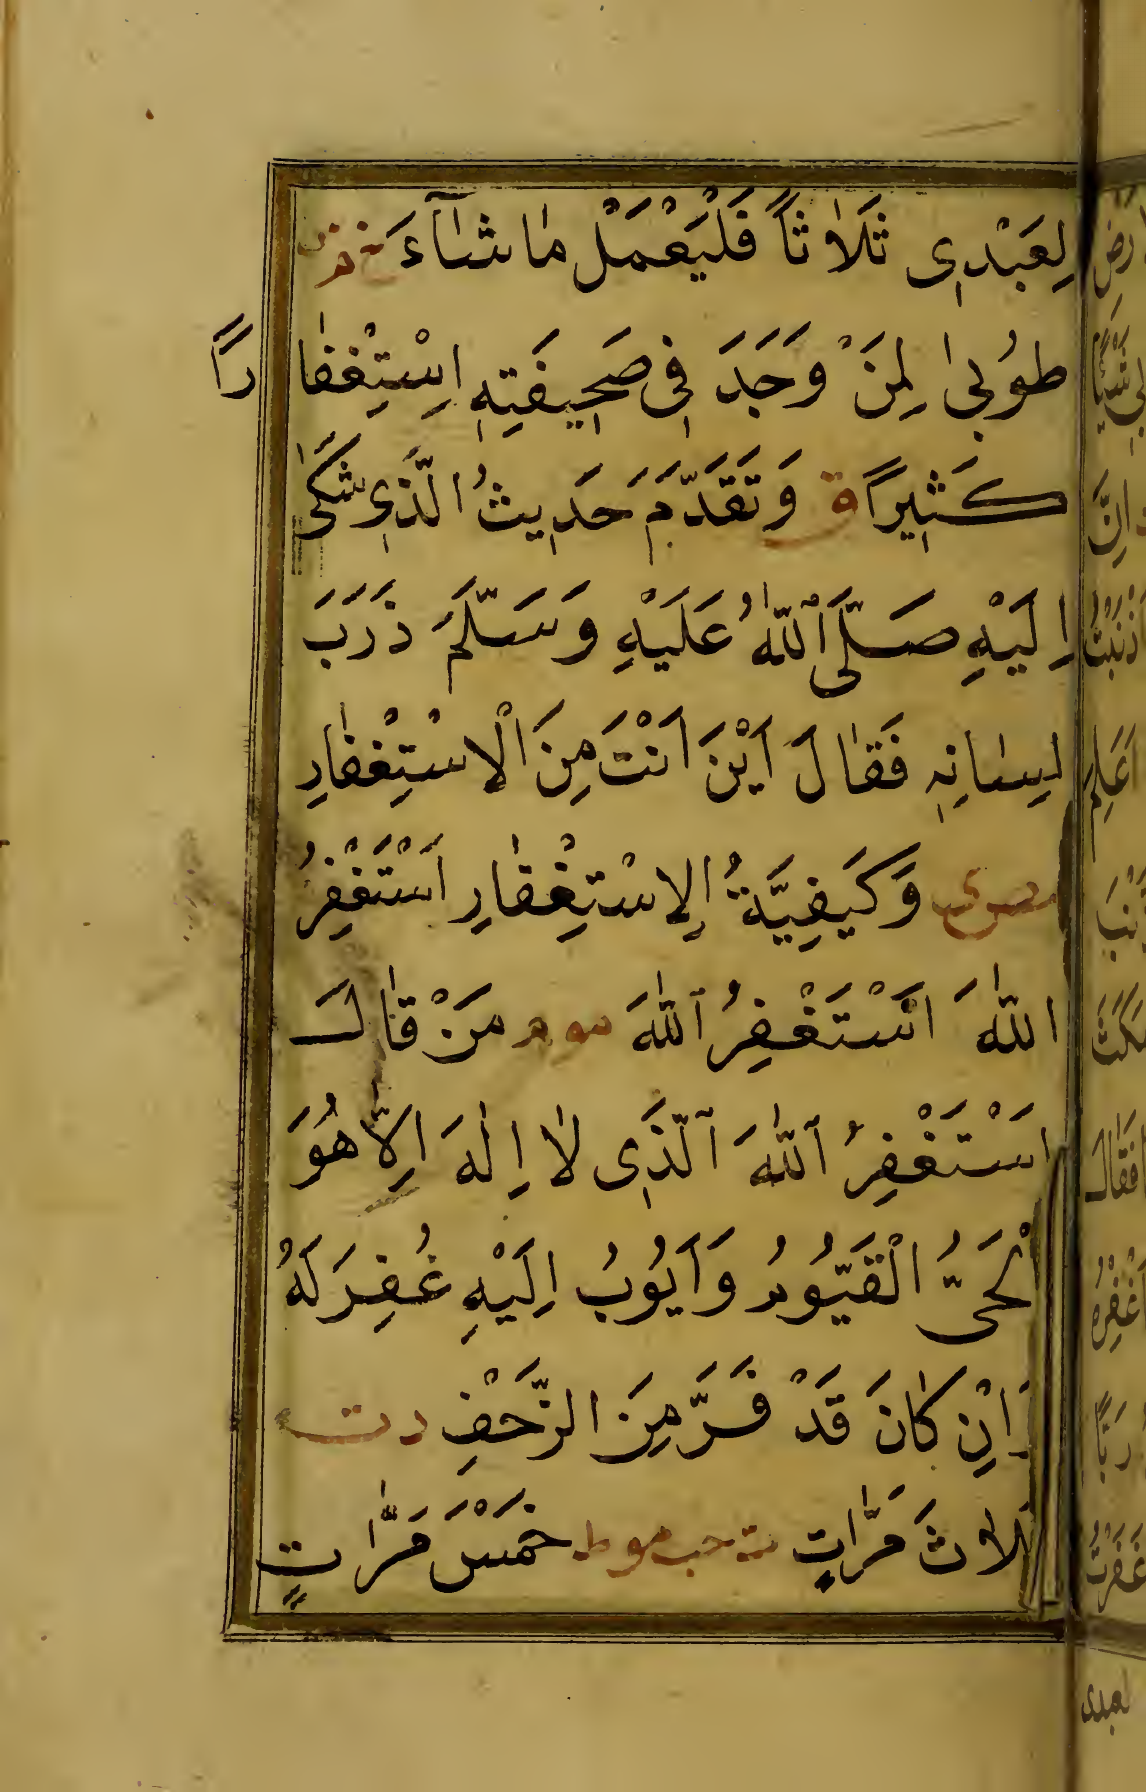 لِعَبْدِي ثَلَاثًا فَلْيَعْمَلْ مَا شَآءَ خ م س
طُوبىٰ لِمَنْ وَجَدَ فِي صَحِيفَتِهِ اِسْتِغْفَارًا
كَثِيرًا ق وَتَقَدَّمَ حَدِيثُ الَّذِي شَكىٰ
اِلَيْهِ صَلَّى اللّٰهُ عَلَيْهِ وَسَلَّمَ ذَرَبَ
لِسَانِهِ فَقَالَ اَيْنَ اَنْتَ مِنَ الْاِسْتِغْفَارِ
مص ى وَكَيْفِيَّةُ الِاسْتِغْفَارِ اَسْتَغْفِرُ
اللّٰهَ اَسْتَغْفِرُ اللّٰهَ مو م مَنْ قَالَ
اَسْتَغْفِرُ اللّٰهَ الَّذِي لَا اِلٰهَ اِلَّا هُوَ
الْحَيُّ الْقَيُّومُ وَاَتُوبُ اِلَيْهِ غُفِرَ لَهُ
وَاِنْ كَانَ قَدْ فَرَّ مِنَ الزَّحْفِ د ت
ثَلَاثَ مَرَّاتٍ ت حب مو ط خَمْسَ مَرَّاتٍ